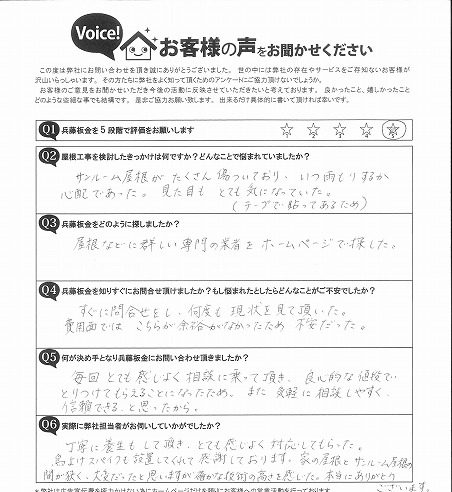 Voice!
お客様の声をお聞かせください
この度は弊社にお問い合わせを頂き誠にありがとうございました。世の中には弊社の存在やサービスをご存知ないお客様が
沢山いらっしゃいます。その方たちに弊社をよく知って頂くためのアンケートにご協力頂けないでしょうか。
お客様のご意見をお聞かせいただき今後の活動に反映させていただきたいと考えております。良かったこと、嬉しかったこと
どのような些細な事でも結構です。是非ご協力お願い致します。出来るだけ具体的に書いて頂ければ幸いです。
Q1 兵藤板金を5段階で評価をお願いします
☆1 ☆2 ☆3 ☆4 ☆5
Q2 屋根工事を検討したきっかけは何ですか？どんなことで悩まれていましたか？
サンルーム屋根がたくさん傷ついており、いつ雨もりするか
心配であった。見た目もとても気になっていた。
(テープで貼ってあるため)
Q3 兵藤板金をどのように探しましたか？
屋根などに詳しい専門の業者をホームページで探した。
Q4 兵藤板金を知りすぐにお問合せ頂けましたか？もし悩まれたとしたらどんなことがご不安でしたか？
すぐに問合せをし、何度も現状を見て頂いた。
費用面ではこちらが余裕がなかったため不安だった。
Q5 何が決め手となり兵藤板金にお問い合わせ頂きましたか？
毎回とても感じよく相談に乗って頂き、良心的な値段で
とりつけてもらえることになったため、また気軽に相談しやすく、
信頼できると思ったから。
Q6 実際に弊社担当者がお伺いしていかがでしたか？
丁寧に養生もして頂き、とても感じよく対応してもらった。
鳥よけスパイクも設置してくれて感謝しております。家の屋根とサンルーム屋根の
間が狭く、大変だったと思いますが 技術の高さを感じた。本当にありがとう
ございます。